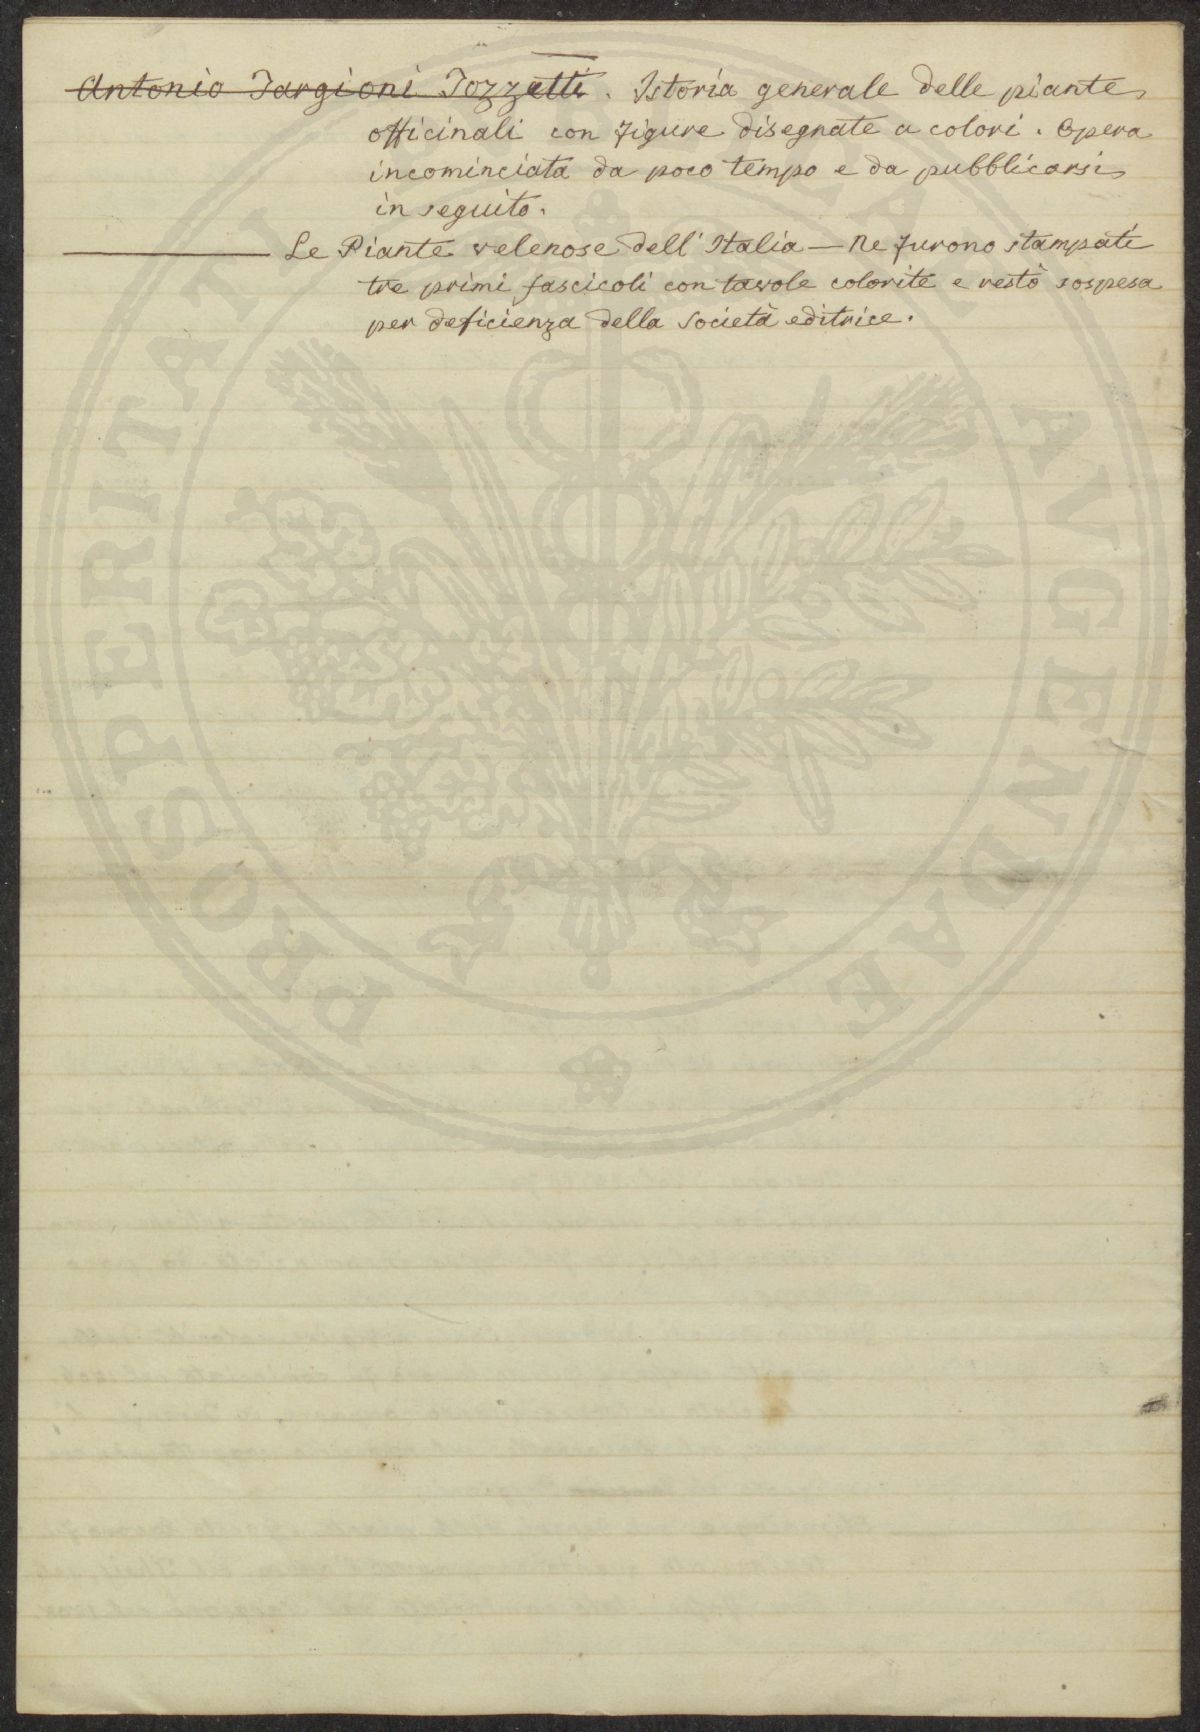 Antonio Targioni Tozzetti. Istoria generale delle piante
officinali con figure disegnate a colori. Opera
incominciata da poco tempo e da pubblicarsi
in seguito.
Le Piante velenose dell'Italia — Ne furono stampati
tre primi fascicoli con tavole colorite e restò sospesa
per deficienza della Società editrice.
PROSPERITATI AVGENDAE